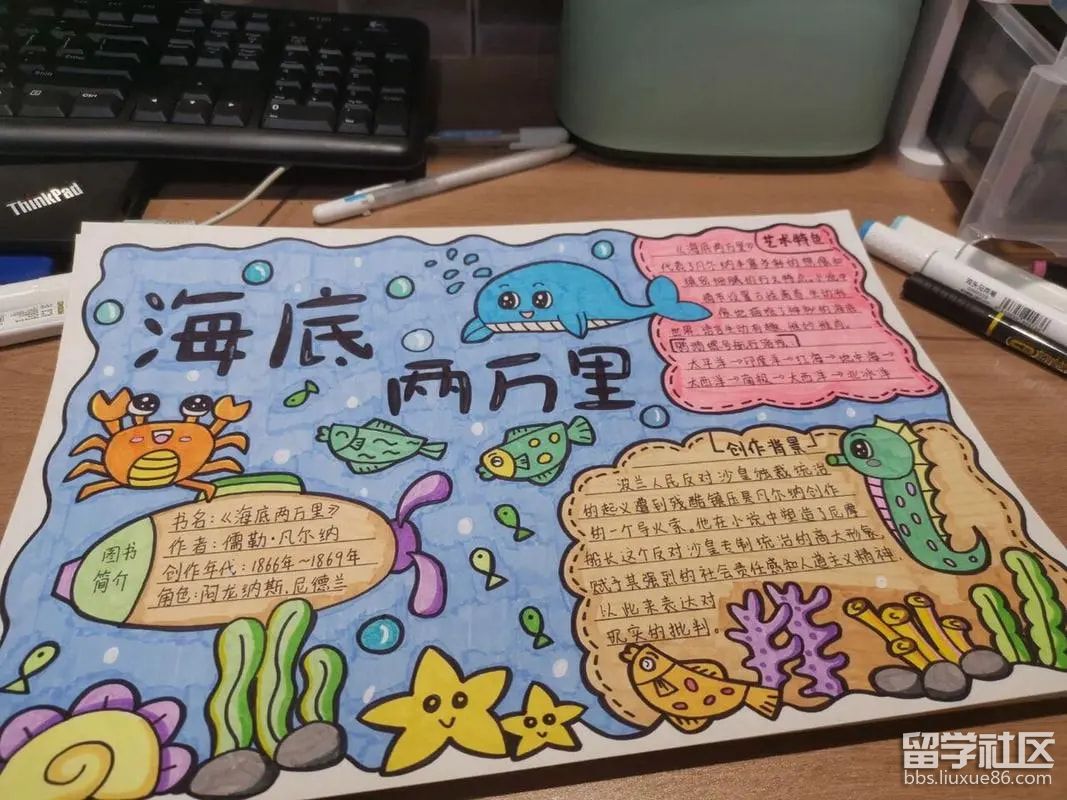 ThinkPad
海底
两万里
艺术特色
《海底两万里》
代表了凡尔纳
鹦鹉螺号航行路线：
太平洋→印度洋→红海→地中海→
大西洋→南极→大西洋→北冰洋
图书
简介
书名：《海底两万里》
作者：儒勒·凡尔纳
创作年代：1866年~1869年
角色：阿龙纳斯、尼德兰
创作背景
波兰人民反对沙皇独裁统治
的起义遭到残酷镇压是凡尔纳创作
的一个导火索。他在小说中塑造了尼摩
船长这个反对沙皇专制统治的高大形象
赋予其强烈的社会责任感和人道主义精神
以此来表达对
现实的批判。
留学社区
bbs.liuxue86.com